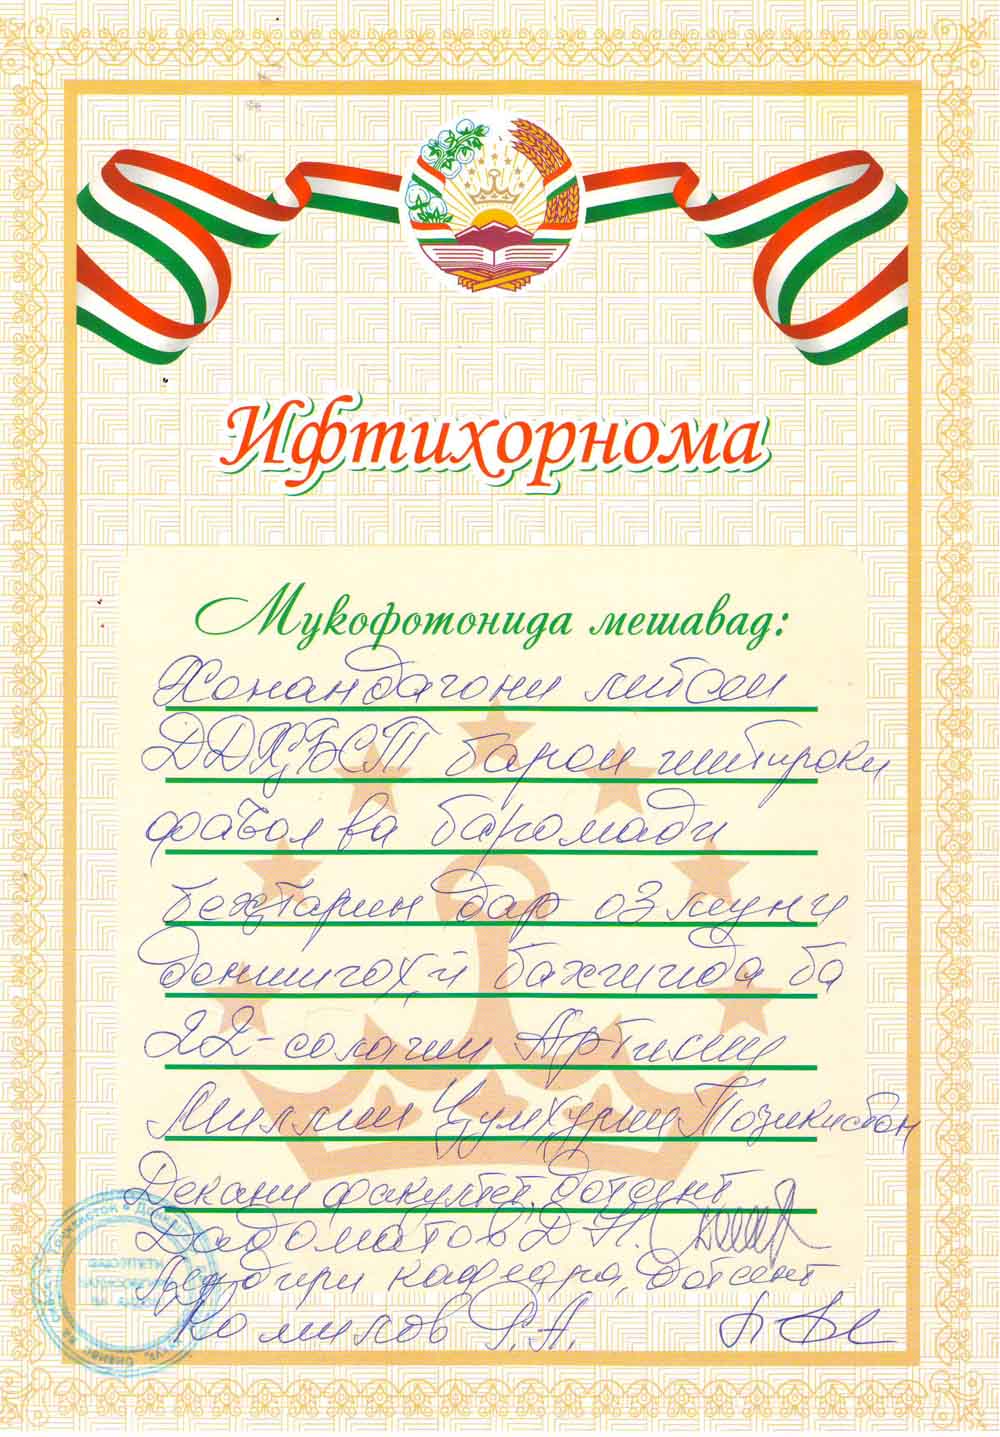 Ифтихорнома
Мукофотонида мешавад:
Хонандагони литсеи
ДДҲБСТ барои иштироки
фаъол ва баромади
беҳтарин дар озмуни
донишгоҳӣ бахшида ба
22-солагии Артиши
Миллии Ҷумҳурии Тоҷикистон
Декани факултет, дотсент
Дадоматов Д. Н.
Мудири кафедра, дотсент
Комилов